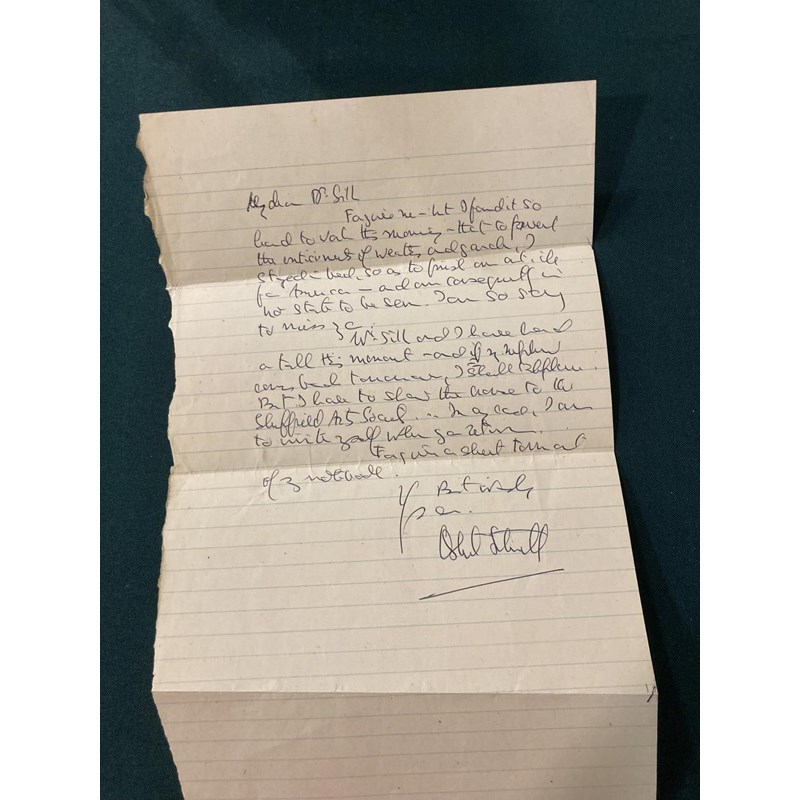 My dear Dr. Sill
Forgive me – but I found it so
hard to work this morning – that to prevent
the enticements of weather and garden, I
stayed in bed, so as to finish an article
for America – and am consequently in
no state to be seen. I am so sorry
to miss you.
Mr. Sill and I have had
a talk this moment – and if my nephew
comes back tomorrow, I shall telephone.
But I have to show the house to the
Sheffield Art Society ... In any case, I am
to write you all when you return.
Forgive a sheet torn out
of my notebook.
Best wishes,